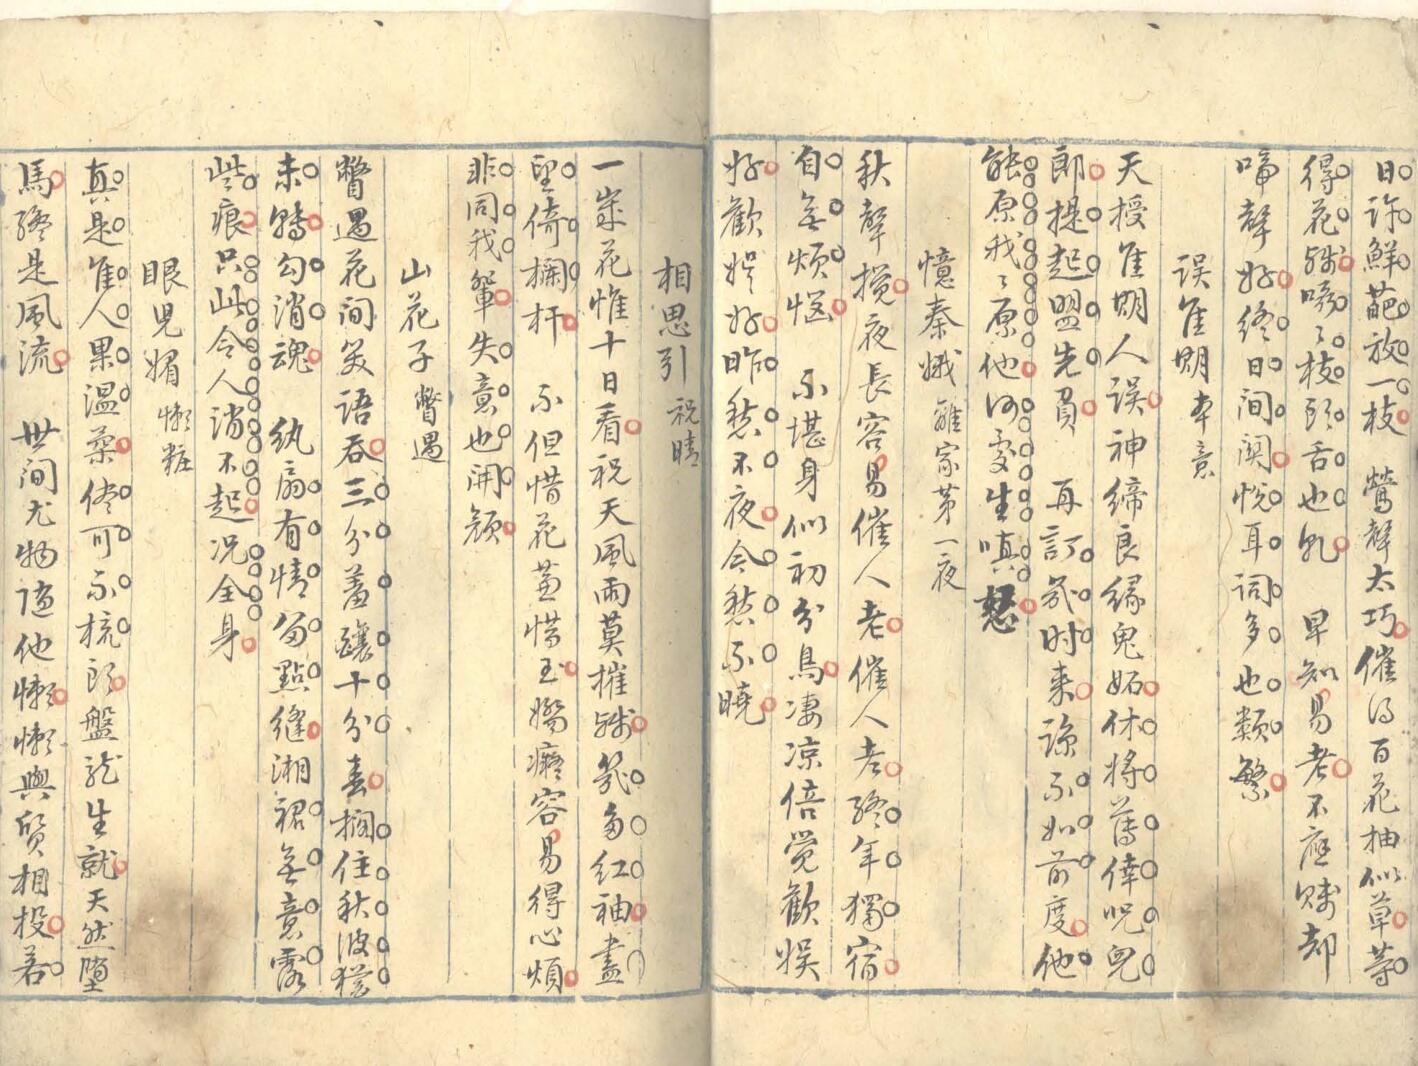 日許鮮葩放一枝 鶯聲太巧催得百花抽似草等
得花殘嚦々枝頭舌也乳 早知易老不應賦却
啼聲好終日間関悅耳詞多也類繁
誤隹期 本意
天授隹期人誤神締良緣鬼妬休將薄倖呪兒
郎提起盟先負 再訂幾时来諒不如前度他
能原我々原他何處生嗔怒
憶秦娥 離家第一夜
秋聲攪夜長容易催人老催人老終年獨宿
自無煩惱 不堪身似初分鳥凄凉倍覺歡娛
好歡娛好昨愁不夜今愁不曉
相思引 祝晴
一歲花惟十日看祝天風雨莫摧殘幾多紅袖盡
望倚欄杆 不但惜花兼惜玉嬌癡容易得心煩
非同我輩失意也開顏
山花子 瞥遇
瞥遇花間笑語吞三分羞釀十分春擱住秋波猶
未轉勾消魂 紈扇有情多點縫湘裙無意露
些痕只此令人消不起况全身
眼兒媚 懶粧
真是隹人果温柔儘可不梳頭盤龍生就天然墮
馬終是風流 世間尤物讓他懶懶與貭相投若